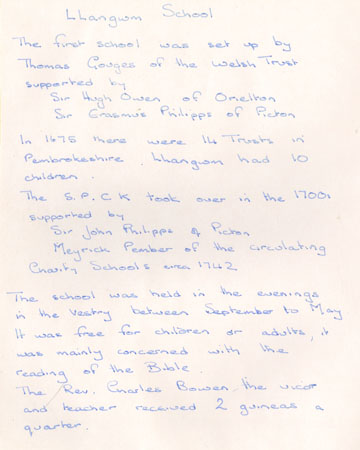 Llangwm School
The first school was set up by
Thomas Gouges of the Welsh Trust
supported by
Sir Hugh Owen of Orielton
Sir Erasmus Philipps of Picton
In 1675 there were 14 Trusts in
Pembrokeshire. Llangwm had 10
children.
The S.P.C.K took over in the 1700s
supported by
Sir John Philipps of Picton
Meyrick Pember of the circulating
Charity Schools circa 1742
The school was held in the evenings
in the vestry between September to May
It was free for children or adults, it
was mainly concerned with the
reading of the Bible.
The Rev. Charles Bowen, the vicar
and teacher received 2 guineas a
quarter.